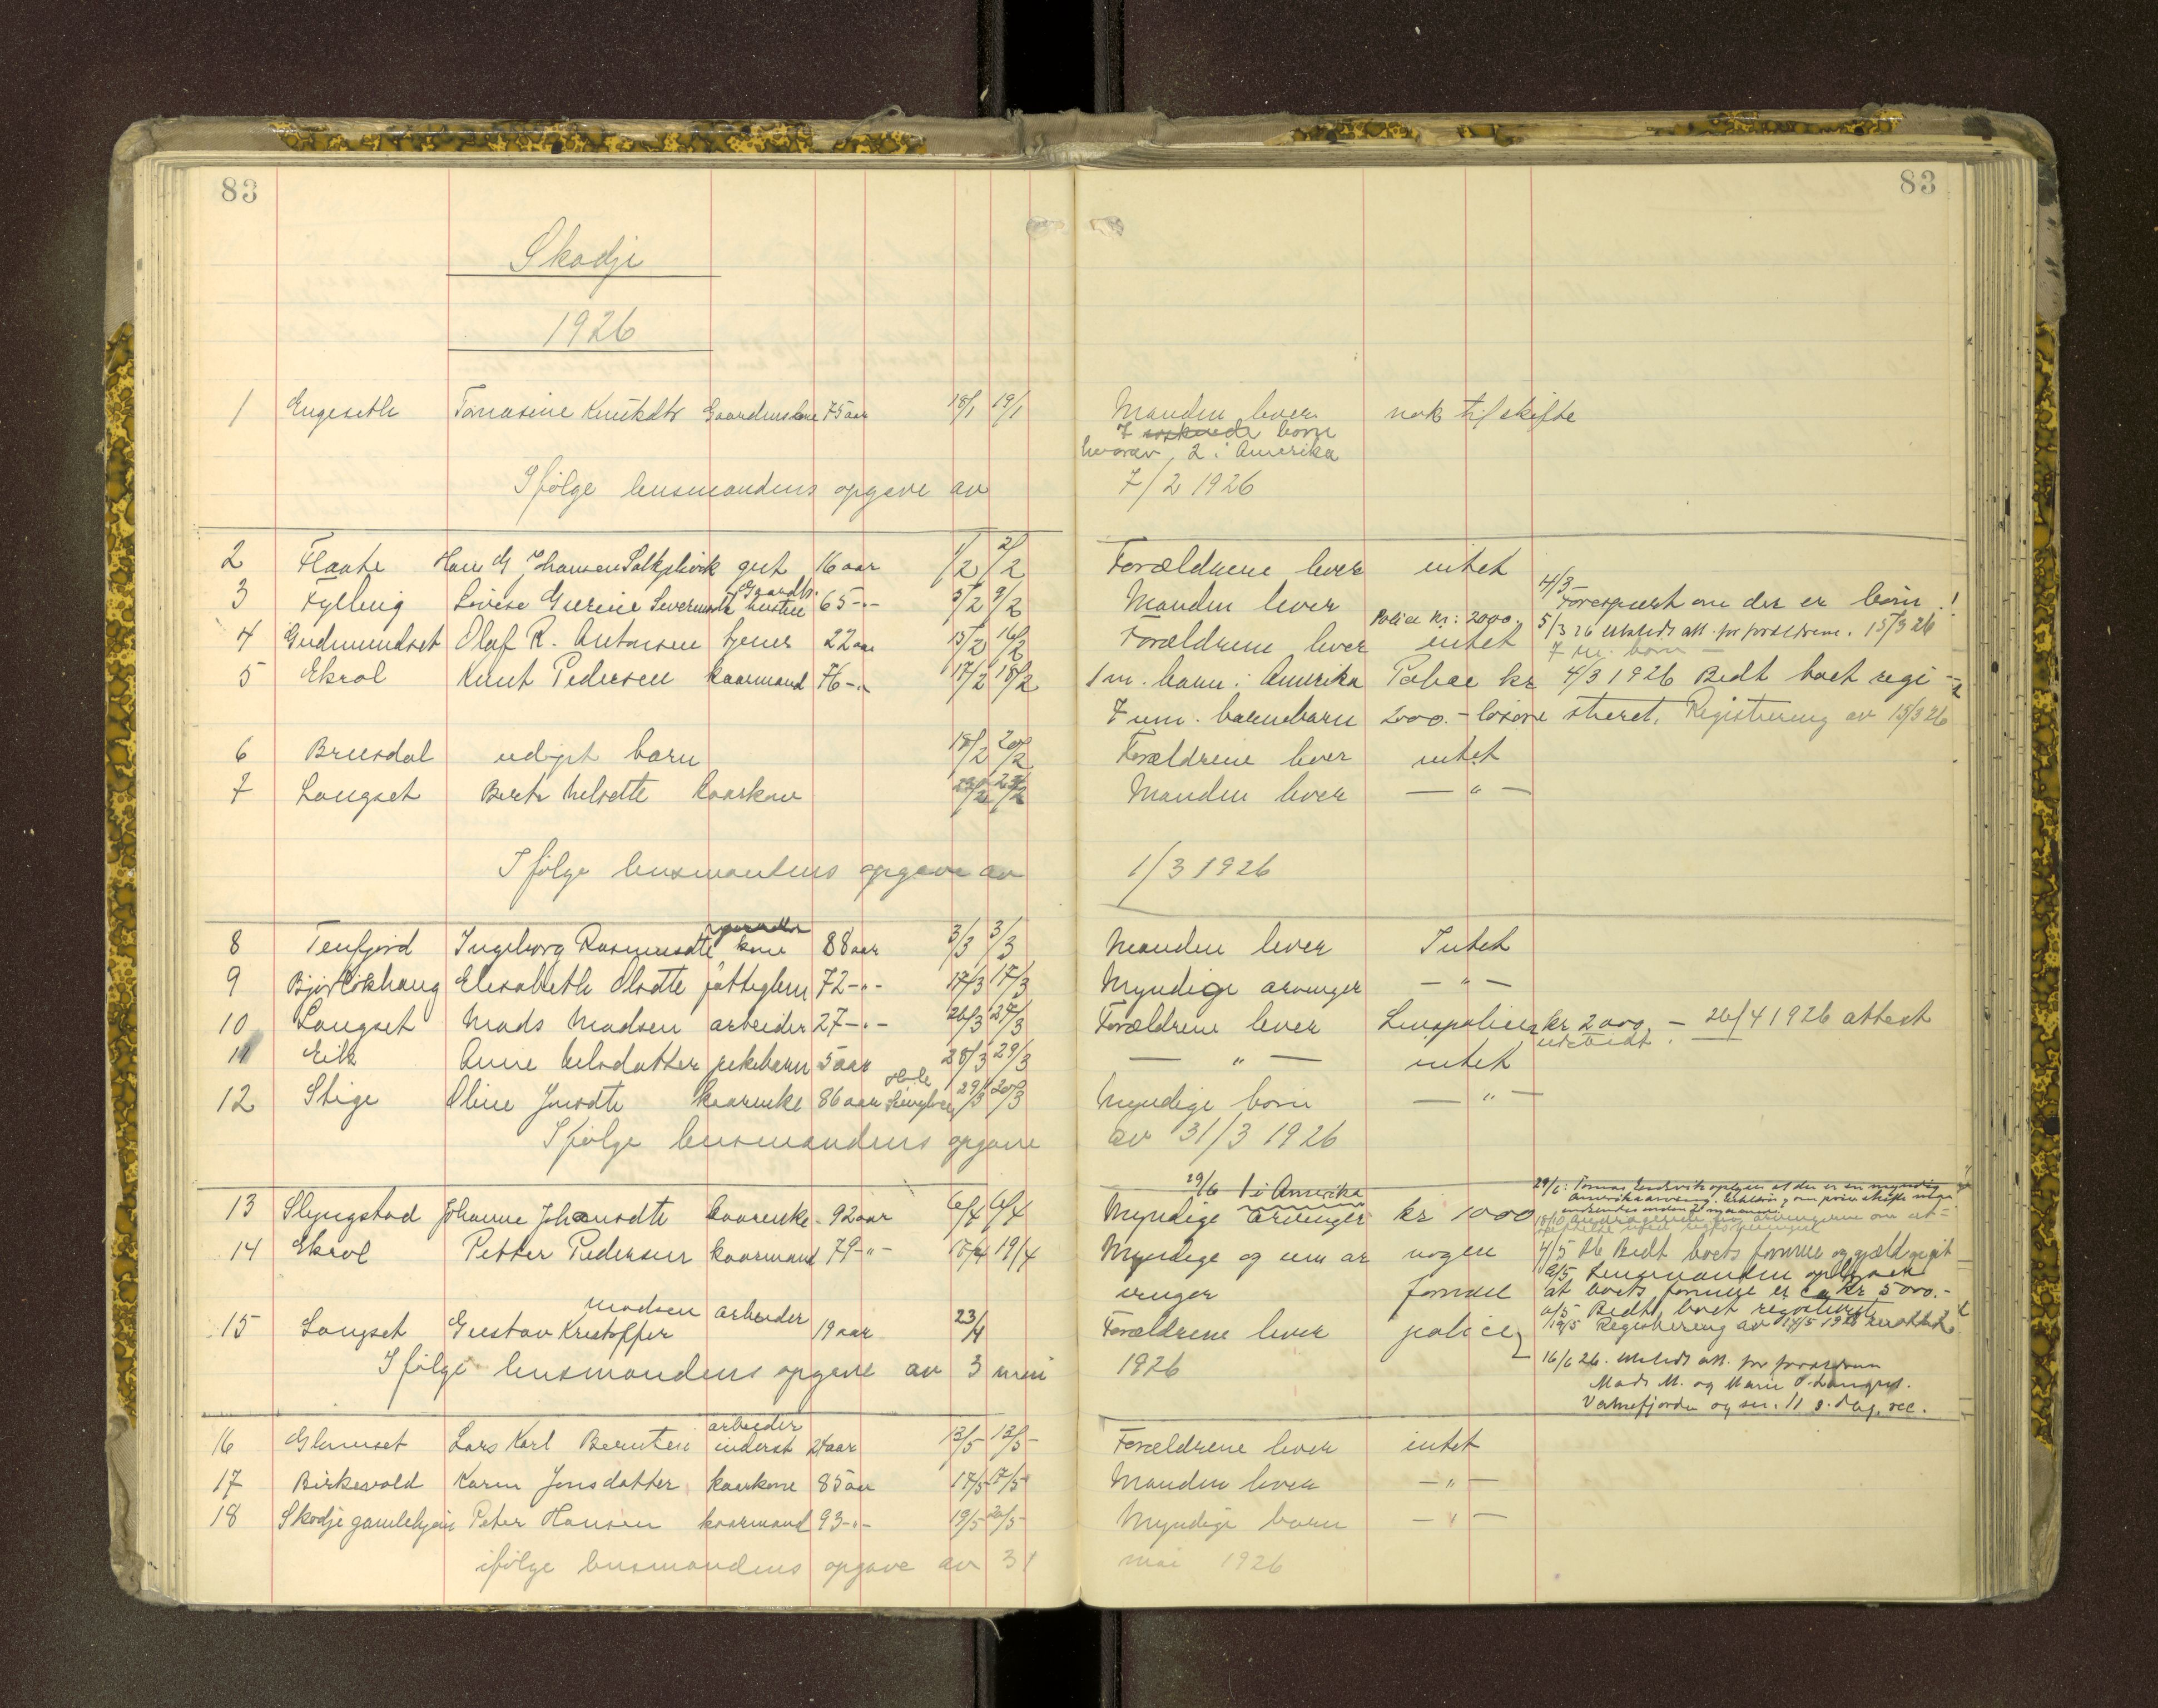 83
83
Skodje
1926
1 Engeseth Tomasine Knutsdtr Gaardmandskone 75 aar 18/1 19/1 Manden lever nok til skifte
7 børn
hvorav 2 i Amerika
Ifølge lensmandens opgave av 7/2 1926
2 Flaate Hans G Johansen gut 16 aar 1/2 2/2 Forældrene lever intet
3 Fylling Lovise Gurine Sivertsdtr Gaardbr. hustru 65 -"- 5/2 9/2 Manden lever 4/3 Forespurt om der er børn!
Police kr: 2000.- 5/3 26 utstedt att. for forældrene. 15/3 26
4 Gudmundset Olaf R. Antonsen tjener 22 aar 15/2 16/2 Forældrene lever intet 7 m. børn –
5 Ekrol Knut Pedersen kaarmand 76 -"- 17/2 18/2 1 m. barn i Amerika Police kr 4/3 1926 Bedt boet regi-
7 um. barnebarn 2000.- løsøre streret. Registrering av 15/3 26
6 Brusdal udøpt barn 18/2 20/2 Forældrene lever intet
7 Langset Berte Nelsdtte kaarkone Manden lever — " —
Ifølge lensmandens opgave av 1/3 1926
8 Tenfjord Ingeborg Rasmusdtte kone 88 aar 3/3 3/3 Manden lever Intet
9 Bjørlikhaug Elisabeth Olsdtte fattiglem 72 -"- 17/3 17/3 Myndige arvinger — " —
10 Langset Mads Madsen arbeider 27 -"- 26/3 27/3 Forældrene lever Livspolice kr 2000,- 26/4 1926 attest
utstedt.
11 Eik Anne Nelsdatter pikebarn 5 aar 28/3 29/3 — " — intet
12 Stige Oline Jonsdtte kaarenke 86 aar 29/3 Myndige børn — " —
Ifølge lensmandens opgave av 31/3 1926
29/6 1 i Amerika
13 Slyngstad Johanne Johansdtte kaarenke 92 aar 6/4 6/4 Myndige arvinger kr 1000
14 Ekrol Petter Pedersen kaarmand 79 -"- 19/4 Myndige og um ar nogen 4/5 Bedt boets formue og gjæld opgit
vinger formue 8/5 Lensmanden oplyser
at boets formue er ca kr 5000.-
15 Langset Gustav Kristoffer Madsen arbeider 19 aar 23/4 Forældrene lever police 11/5 Bedt boet registrert
19/5 Registrering av 17/5 1926
Ifølge lensmandens opgave av 3 mai 1926
16/6 26. Utstedt att. for forældrene
Mads M. og Marie O. Langset.
Vatnefjorden
16 Glamset Lars Karl Berntsen arbeider inderst 24 aar 12/5 12/5 Forældrene lever intet
17 Birkevold Karen Jonsdatter kaarkone 85 aar 17/5 17/5 Manden lever — " —
18 Skodje gamlehjem Peter Hansen kaarmand 93 -"- 19/5 20/5 Myndige barn — " —
ifølge lensmandens opgave av 31 mai 1926